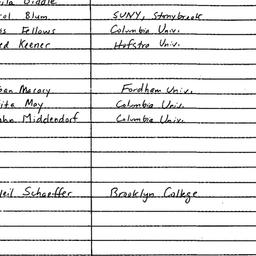 Biddle
ol Blum SUNY, Stonybrook
s Fellows Columbia Univ.
ed Keener Hofstra Univ.
an Macary Fordham Univ.
ita May Columbia Univ.
hn Middendorf Columbia Univ.
eil Schaeffer Brooklyn College